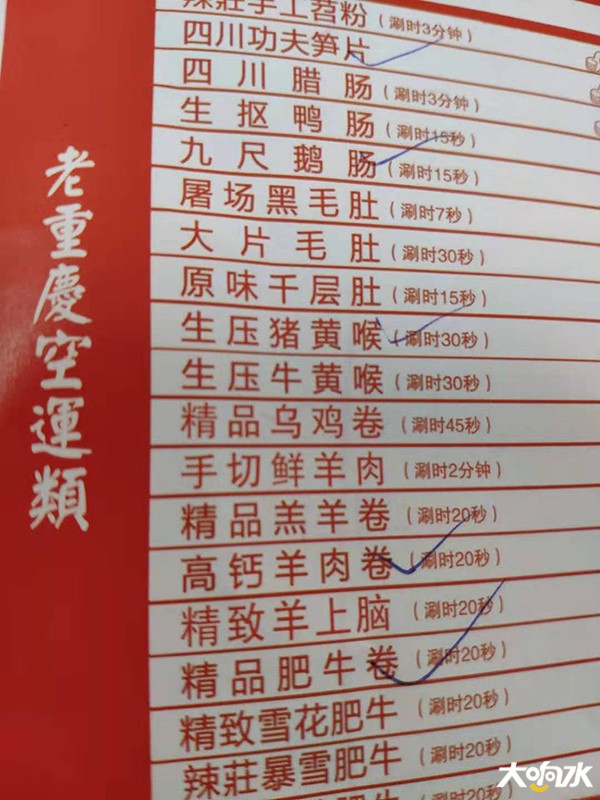 老重慶空運類
辣莊手工苕粉（涮时3分钟）
四川功夫笋片
四川腊肠（涮时3分钟）
生抠鸭肠（涮时15秒）
九尺鹅肠（涮时15秒）
屠场黑毛肚（涮时7秒）
大片毛肚（涮时30秒）
原味千层肚（涮时15秒）
生压猪黄喉（涮时30秒）
生压牛黄喉（涮时30秒）
精品乌鸡卷（涮时45秒）
手切鲜羊肉（涮时2分钟）
精品羔羊卷（涮时20秒）
高钙羊肉卷（涮时20秒）
精致羊上脑（涮时20秒）
精品肥牛卷（涮时20秒）
精致雪花肥牛（涮时20秒）
辣莊暴雪肥牛（涮时20秒）
大响水